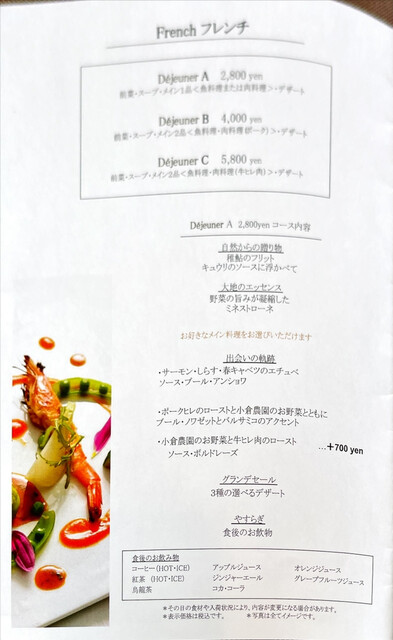 French フレンチ
Déjeuner A 2,800 yen
前菜・スープ・メイン1品＜魚料理または肉料理＞・デザート
Déjeuner B 4,000 yen
前菜・スープ・メイン2品＜魚料理・肉料理(ポーク)＞・デザート
Déjeuner C 5,800 yen
前菜・スープ・メイン2品＜魚料理・肉料理(牛ヒレ肉)＞・デザート
Déjeuner A 2,800yen コース内容
自然からの贈り物
稚鮎のフリット
キュウリのソースに浮かべて
大地のエッセンス
野菜の旨みが凝縮した
ミネストローネ
お好きなメイン料理をお選びいただけます
出会いの軌跡
・サーモン・しらす・春キャベツのエチュベ
ソース・ブール・アンショワ
・ポークヒレのローストと小倉農園のお野菜とともに
ブール・ノワゼットとバルサミコのアクセント
・小倉農園のお野菜と牛ヒレ肉のロースト …+700 yen
ソース・ボルドレーズ
グランデセール
3種の選べるデザート
やすらぎ
食後のお飲物
食後のお飲み物
コーヒー(HOT・ICE) アップルジュース オレンジジュース
紅茶 (HOT・ICE) ジンジャーエール グレープフルーツジュース
烏龍茶 コカ・コーラ
＊その日の食材や入荷状況により、内容が変更になる場合があります。
＊表示価格は税込です。 ＊写真は全てイメージです。